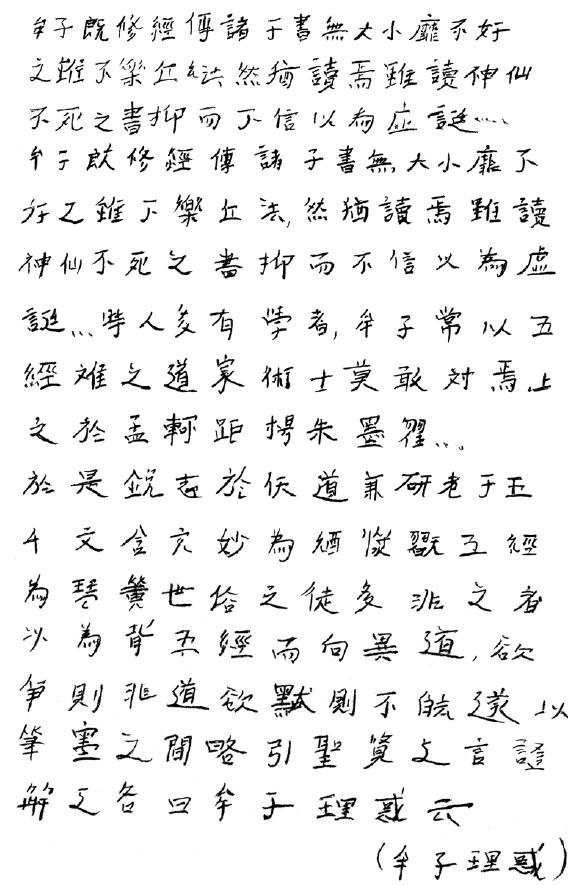 牟子既修經傳諸子書無大小靡不好
之雖不樂兵法然猶讀焉雖讀神仙
不死之書抑而不信以為虛誕....
牟子既修經傳諸子書無大小靡不
好之雖不樂兵法,然猶讀焉雖讀
神仙不死之書抑而不信以為虛
誕...時人多有學者,牟子常以五
經難之道家術士莫敢對焉,上
之於孟軻距楊朱墨翟...
於是銳志於仸道兼研老子五
千文含玄妙為酒漿翫五經
為琴簧世俗之徒多非之者
以為背五經而向異道,欲
爭則非道欲默則不能遂以
筆墨之間略引聖賢之言證
解之名曰牟子理惑云
(牟子理惑)